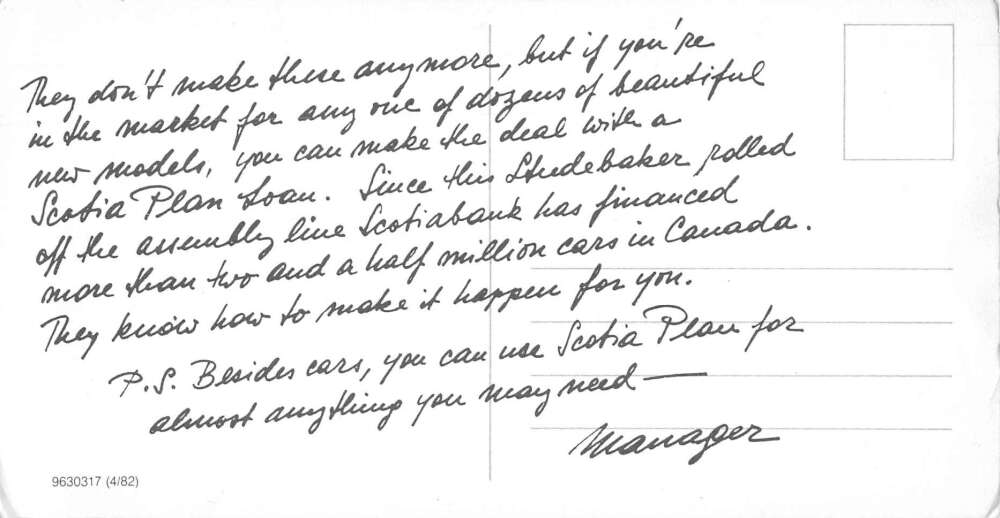 They don't make these anymore, but if you're
in the market for any one of dozens of beautiful
new models, you can make the deal with a
Scotia Plan Loan. Since this Studebaker rolled
off the assembly line Scotiabank has financed
more than two and a half million cars in Canada.
They know how to make it happen for you.
P.S. Besides cars, you can use Scotia Plan for
almost anything you may need —
Manager
9630317 (4/82)